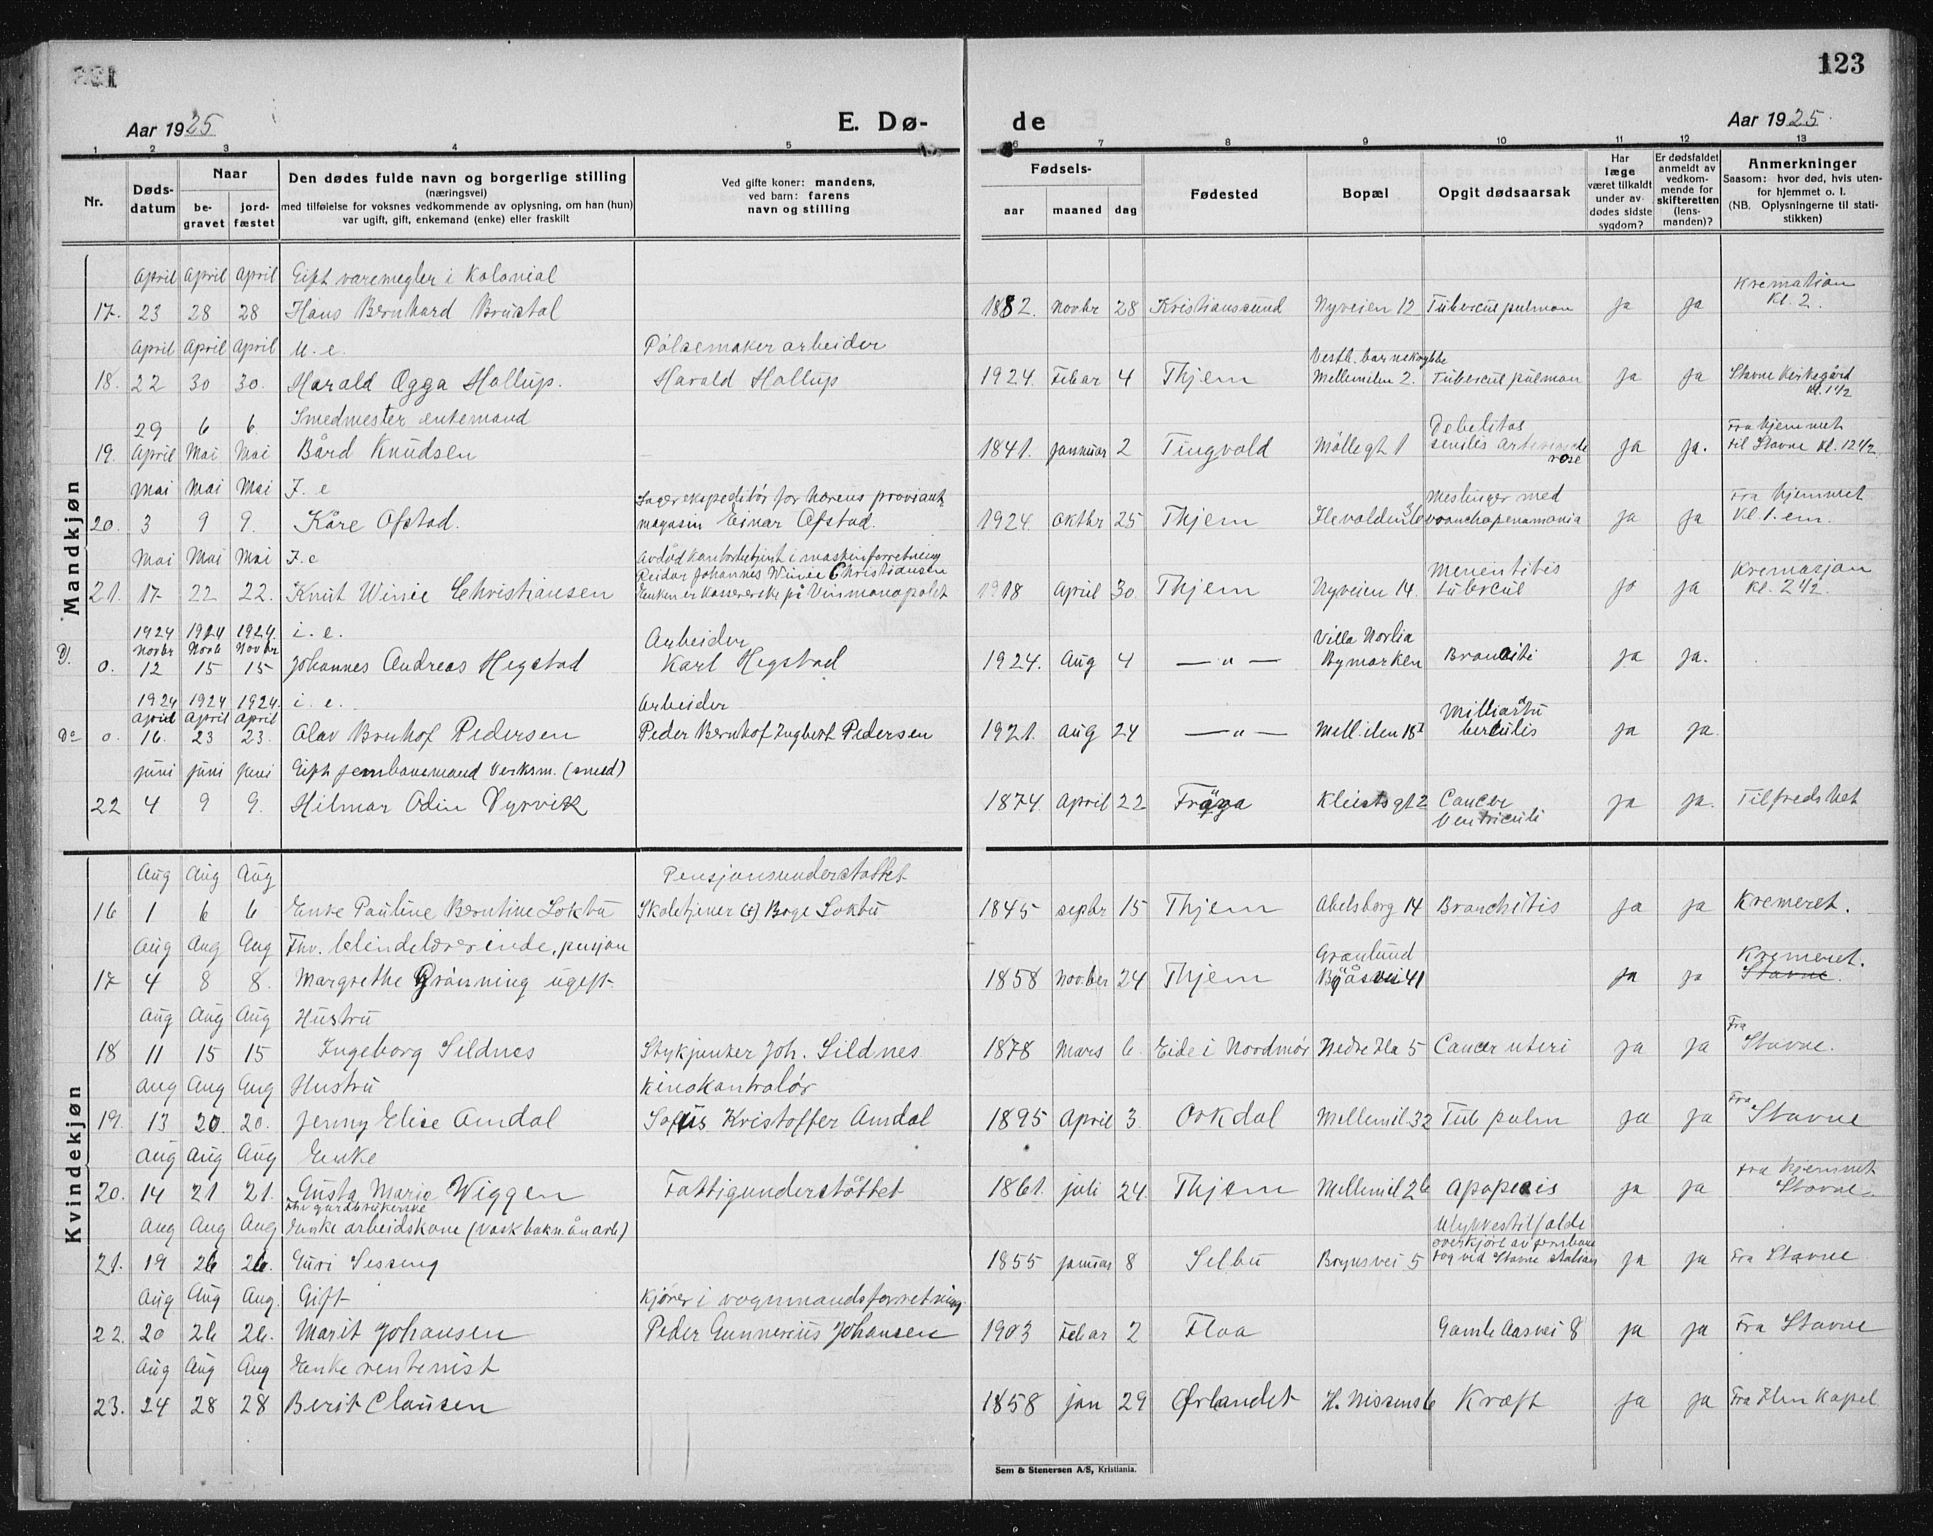 123
Aar 1925
E. Dø-
de
Aar 1925.
1 2 3 4 5 6 7 8 9 10 11 12 13
Nr.
Døds-
datum
Naar
be-
gravet
jord-
fæstet
Den dødes fulde navn og borgerlige stilling
(næringsvei)
med tilføielse for voksnes vedkommende av oplysning, om han (hun)
var ugift, gift, enkemand (enke) eller fraskilt
Ved gifte koner: mandens,
ved barn: farens
navn og stilling
Fødsels-
aar maaned dag
Fødested
Bopæl
Opgit dødsaarsak
Har
læge
været tilkaldt
under av-
dødes sidste
sygdom?
Er dødsfaldet
anmeldt av
vedkom-
mende for
skifteretten
(lens-
manden)?
Anmerkninger
Saasom: hvor død, hvis uten-
for hjemmet o. l.
(NB. Oplysningerne til stati-
stikken)
Mandkjøn
April April April Gift varemegler i Kolonial Kremation
17. 23 28 28 Hans Bernhard Brustal 1882. Novbr 28 Kristianssund Nyveien 12 Tubercul pulmon ja ja Kl. 2.
April April April u. e. Pølsemaker arbeider Vestl. barnekrybbe
18. 22 30 30. Harald Ogga Hollup. Harald Hollup 1924. Febar 4 Thjem Mellemilen 2. Tubercul pulmon ja ja Stavne Kirkegård kl. 1 1/2
29 6 6. Smedmester enkemand Debelitas Fra hjemmet
19. April Mai Mai Bård Knudsen 1841. januar 2 Tingvold Møllegt 1 senilis ja ja. til Stavne kl. 12 1/2
Mai Mai Mai I. e Lagerekspeditør for hærens proviant Meslinger med Fra hjemmet
20. 3 9 9. Kåre Ofstad. magasin Einar Ofstad. 1924. Oktbr 25 Thjem Ilevolden 36 ja ja Kl 1. em.
Mai Mai Mai I. e Avdød kontorbetjent i maskinforretning
Reidar Johannes Winie Christiansen Kremasjon
21. 17 22 22. Knut Winie Christiansen Enken er kassererske på Vinmonopolet 1918 April 30. Thjem Nyveien 14. tubercul jo ja Kl. 2 1/2.
1924 1924 1924. i. e. Arbeider Villa Norlia
Novbr Novb Novbr
D. 0. 12 15 15 Johannes Andreas Hegstad Karl Hegstad 1924. Aug 4 — " — Bymarken ja ja.
1924 1924 1924. i. e. Arbeider
April April April
Do 0. 16. 23 23. Olav Bernhof Pedersen Peder Bernhof Ingbert Pedersen 1921. Aug 24 — " — Mell.ilen 18 berculis ja ja.
juni juni juni Gift jernbanemand Verksm. (smed)
22 4 9 9. Hilmar Odin Vyrvik 1874. April 22 Kleistsgt 2 Cancer ja ja. Tilfredshet
Ventriculi
Kvindekjøn
Aug Aug Aug Pensjonsunderstøttet
16 1 6 6 Enke Pauline Berntine Lokbu Skoletjener (+) Boye Lokbu 1845 septbr 15 Thjem Abelsborg 14 Bronchitis ja ja Kremeret.
Aug Aug Aug Fhv. blindelærerinde, pensjon Grønlund Kremeret.
17 4 8 8. Margrethe Grønning ugift. 1858 Novber 24 Thjem Byåsvei 41 ja ja Stavne.
Aug Aug Aug Hustru Fra
18 11 15 15 Ingeborg Sildnes Stykjunker Joh. Sildnes 1878 Mars 6. Eide i Nordmør Nedre Ila 5 Cancer uteri ja ja Stavne.
Aug Aug Aug Hustru Kinokontrolør Fra
19. 13 20. 20. Jenny Elise Amdal Sofus Kristoffer Amdal 1895 April 3. Orkdal Mellemil 32 Tub pulm ja ja Stavne
Aug Aug Aug Enke Fra hjemmet
20. 14 21 21. Gusta Marie Wiggen Fattigunderstøttet 1861. juli 24 Thjem Mellemil 26 ja ja Stavne
fhv gardbrukerske
Aug Aug Aug Enke arbeidskone (vask ) Ulykkestilfælde
overkjørt av jernbane
21. 19 26 26. Guri Sesseng 1855 januar 8 Selbu Brynsvei 5 tog ved Stavne station ja ja Fra Stavne
Aug Aug Aug. Gift Kjører i vognmandsforretning
22. 20 26 26. Marit Johansen Peder Gunnerius Johansen 1903 Febar 2 Floa Gamle Aasvei 8 ja ja Fra Stavne
Aug Aug Aug Enke rentenist
23. 24 28 28 Berit Clausen 1858 jan 29 Ørlandet H. Nissens 6 Kræft ja ja Fra Ilen Kapel
Sem & Stenersen A/S, Kristiania.